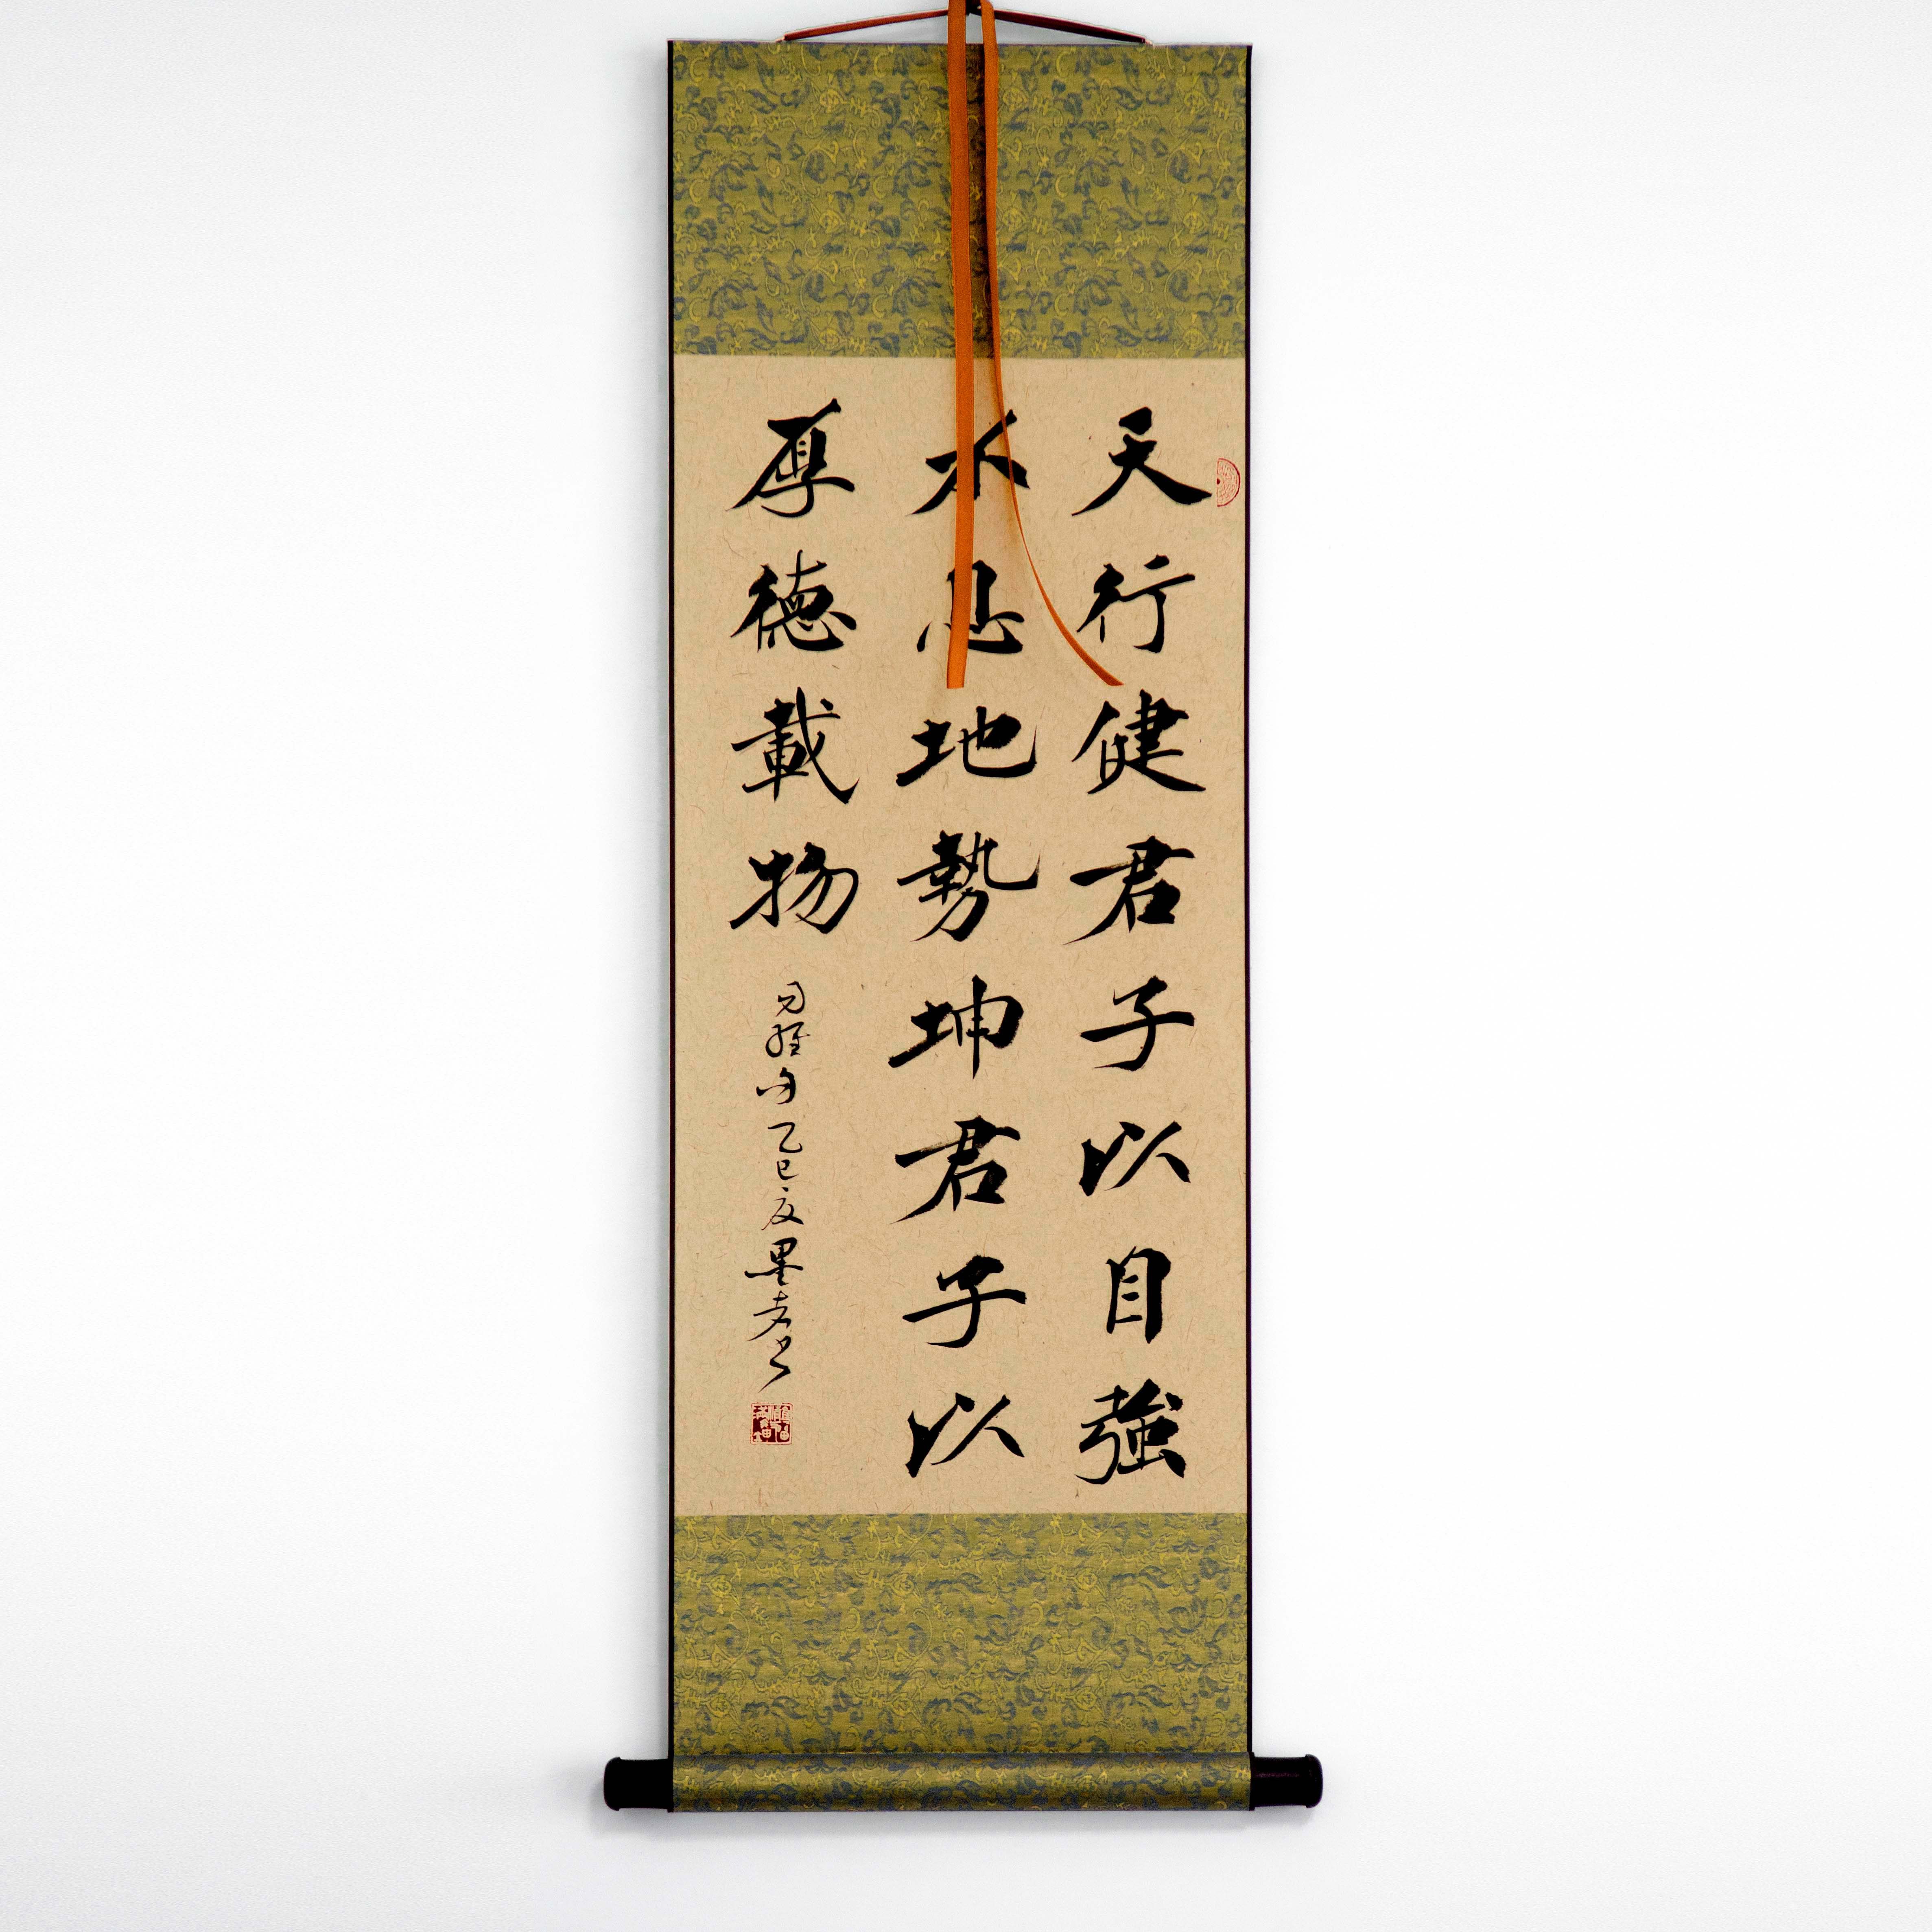 天行健君子以自強
不息地勢坤君子以
厚德載物
易經句乙巳夏墨老書